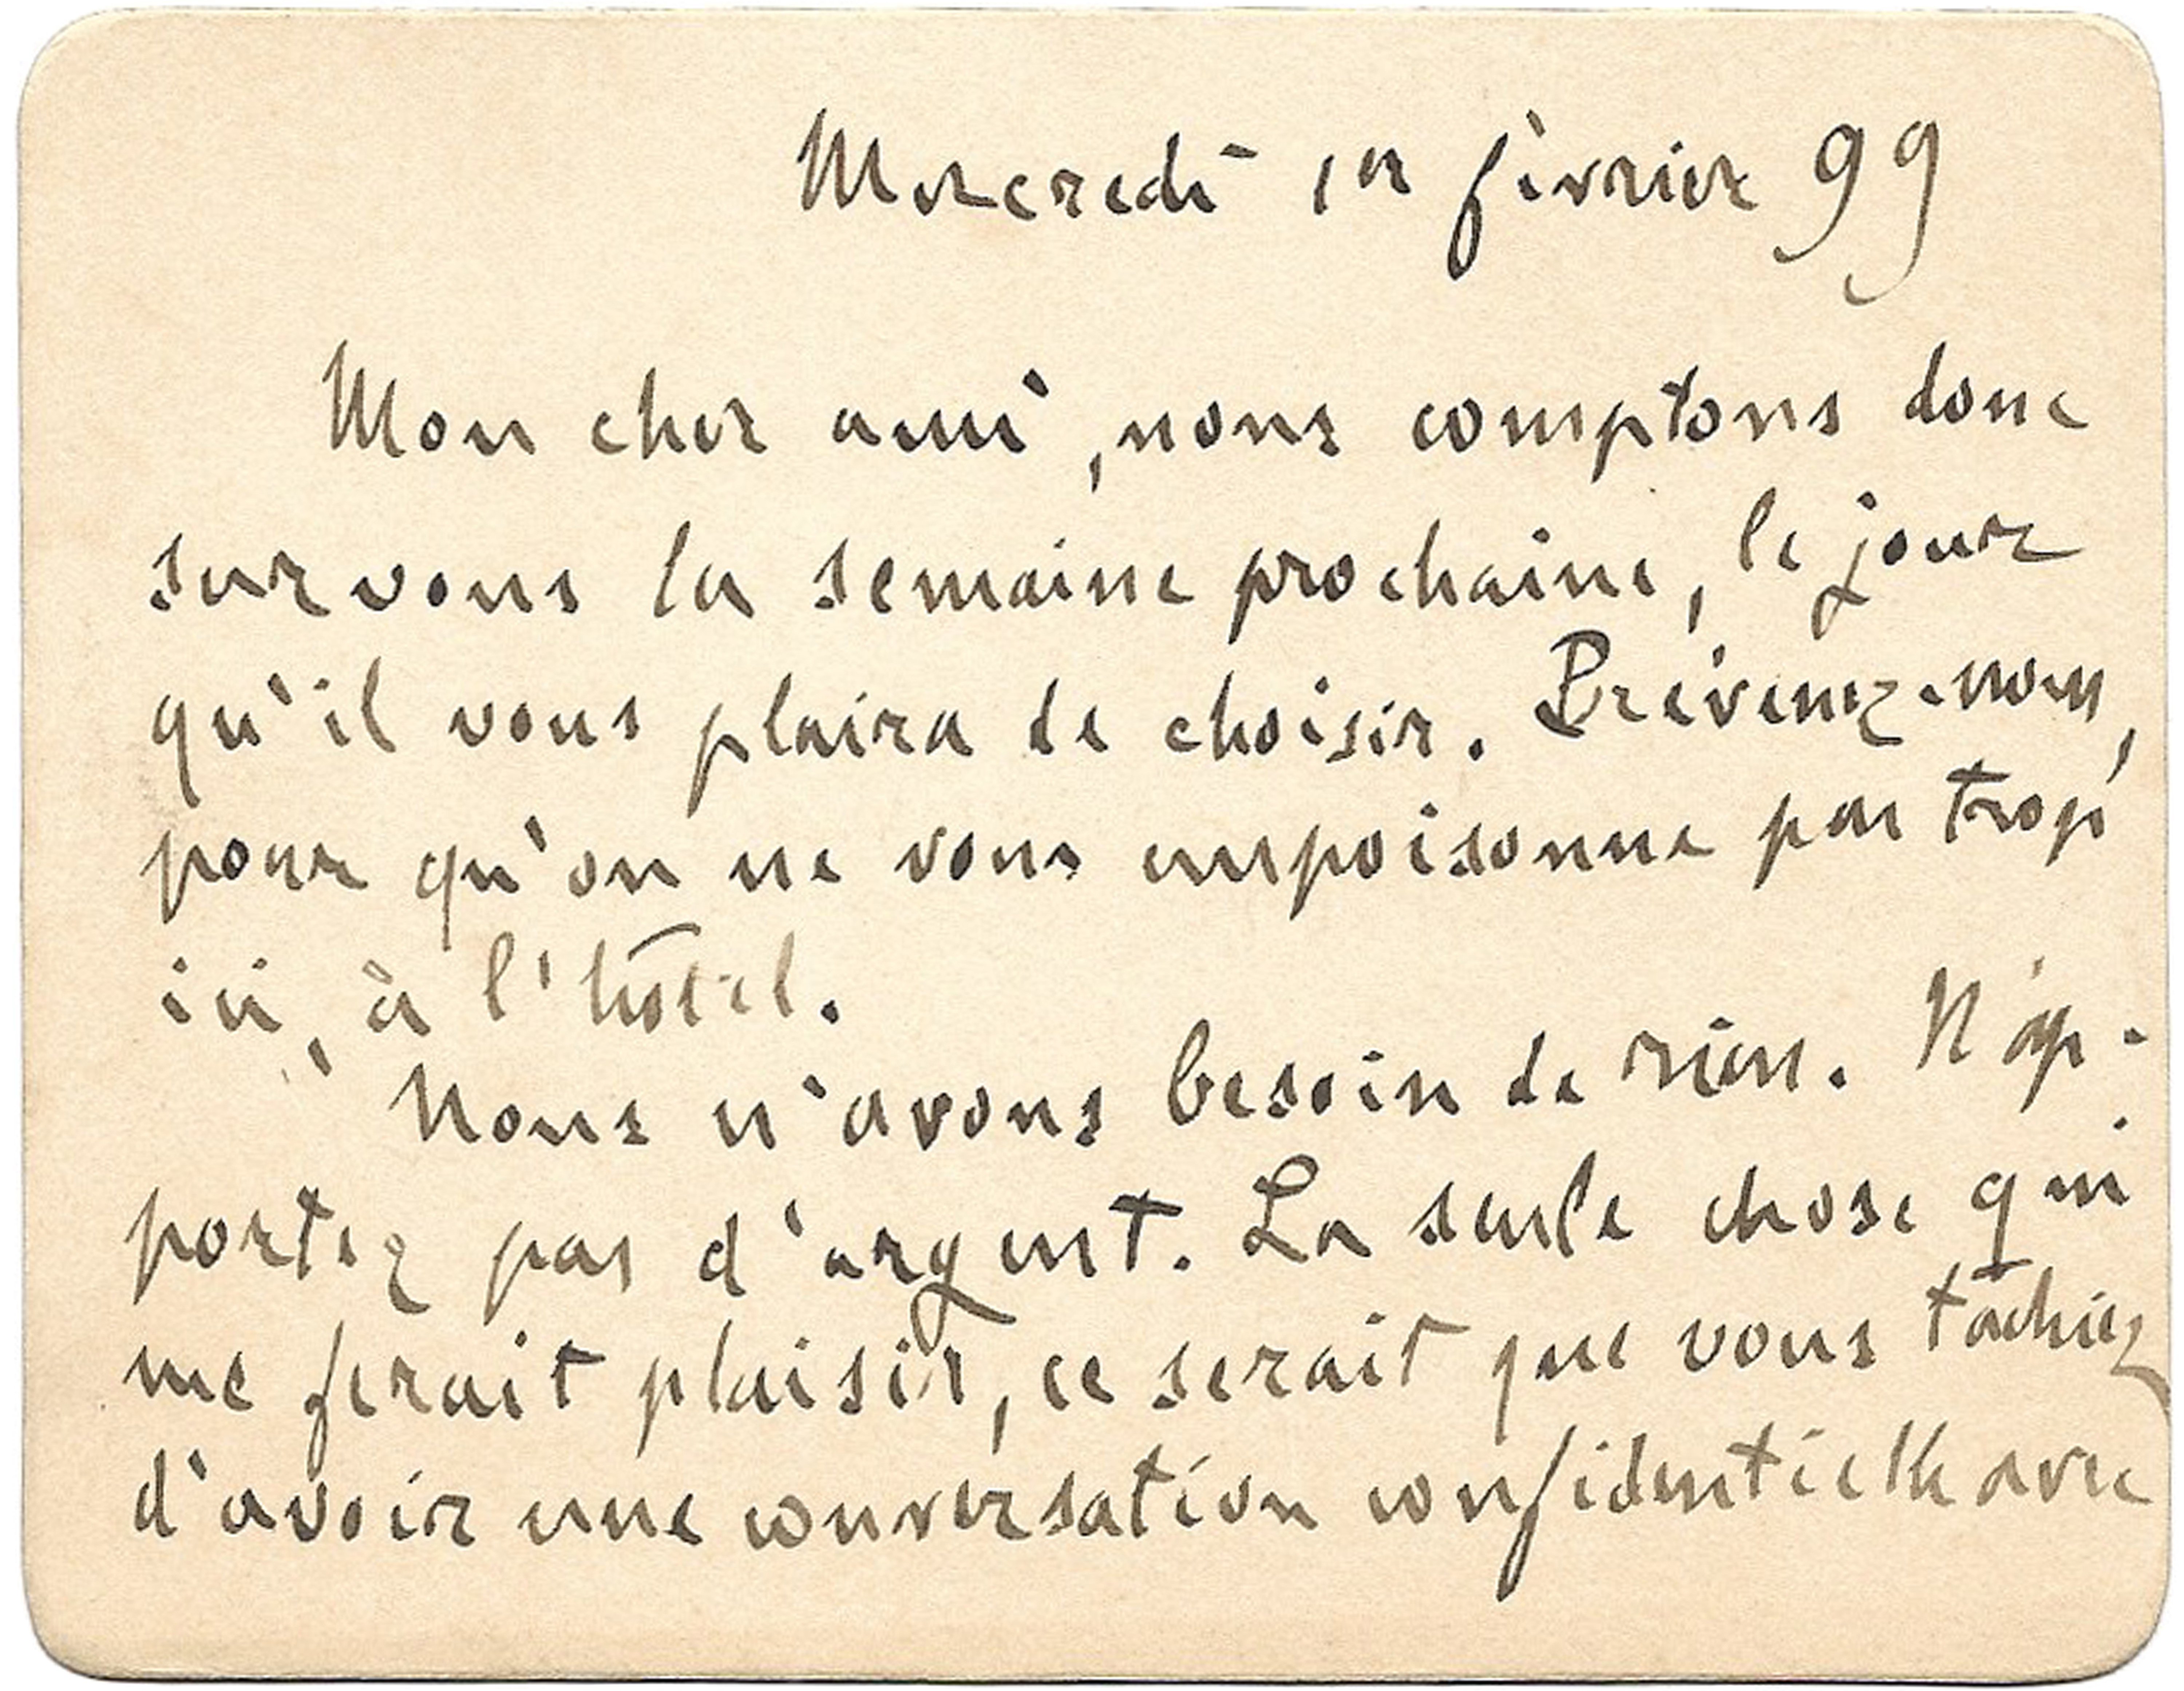 Mercredi 1er février 99
Mon cher ami, nous comptons donc
sur vous la semaine prochaine, le jour
qu'il vous plaira de choisir. Prévenez-nous,
pour qu'on ne vous empoisonne pas trop
ici, à l'hôtel.
Nous n'avons besoin de rien. N'ap-
portez pas d'argent. La seule chose qui
me ferait plaisir, ce serait que vous tachiez
d'avoir une conversation confidentielle avec